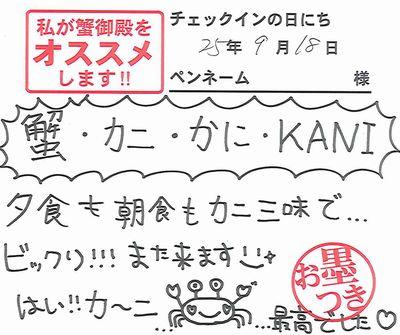 私が蟹御殿を
オススメ
します!!
チェックインの日にち
25年9月18日
ペンネーム 様
蟹・カニ・かに・KANI
夕食も朝食もカニ三昧で…
ビックリ!!! また来ます
はい!!カ〜ニ… …最高でした♡
お墨つき